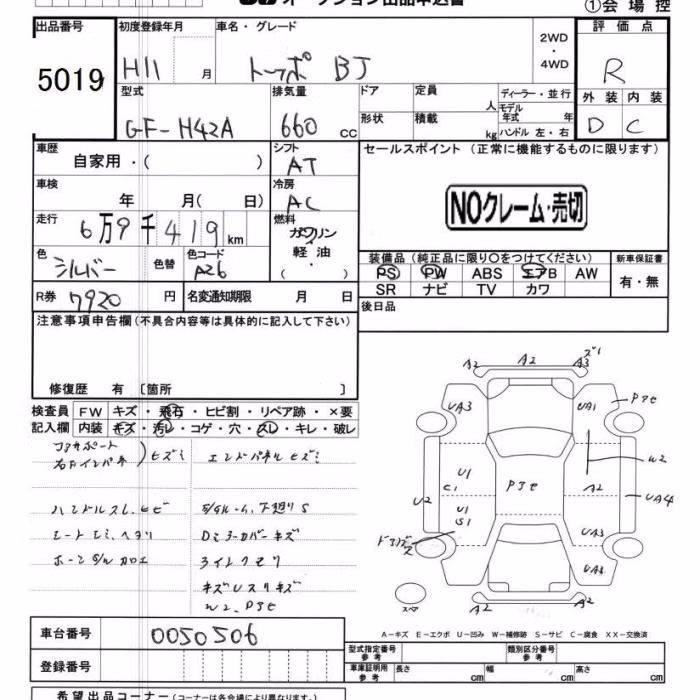 オークション出品申込書
①会場控
出品番号 初度登録年月 車名・グレード 2WD・4WD 評価点
5019 H11 月 トッポ BJ R
型式 排気量 ドア 定員 人 ディーラー・並行
GF-H42A 660 cc 形状 積載 kg モデル年式 年式 ハンドル 左・右
外装 内装
D C
車歴 自家用・( ) シフト AT セールスポイント (正常に機能するものに限ります)
車検 年 月( 日) 冷房 AC
NOクレーム・売切
走行 6万9千419km 燃料 ガソリン・軽油・( )
色 シルバー 色替 色コード A26
装備品 (純正品に限り○をつけてください) 新車保証書
PS PW ABS エアB AW 有・無
SR ナビ TV カワ
R券 7920円 名変通知期限 月 日 後日品
注意事項申告欄(不具合内容等は具体的に記入して下さい)
修復歴 有 〔箇所 〕
検査員 FW キズ・飛石・ヒビ割・リペア跡・×要
記入欄 内装 キズ・汚レ・コゲ・穴・スレ・キレ・破レ
ヒズミ エンドパネルヒズミ
ハンドルスレ、ヒビ 下廻りS
シートシミ、ヘタリ Dミラーカバーキズ
ライトクモリ
W2、P3セ
A2 A2 A3 ズレ
UA3 UA1 P3セ
W2
U1 C1 P3セ A2
U2 U1 S1 UA4
UA3
UA2
A2 A2
スペア
A-キズ E-エクボ U-凹み W-補修跡 S-サビ C-腐食 XX-交換済
車台番号 0050506
登録番号
型式指定番号 参考 類別区分番号 参考
車庫証明用 参考 長さ cm 幅 cm 高さ cm
希望出品コーナー(コーナーは各会場により異なります)